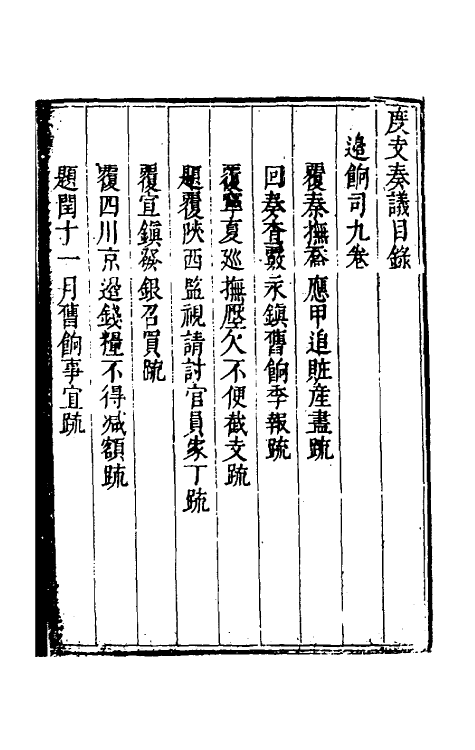 度支奏議目錄
邊餉司九卷
覆秦撫裔應甲追賍產盡疏
回奏查覈永鎮舊餉季報疏
覆寧夏巡撫歷欠不便截支疏
題覆陝西監視請討官員家丁疏
覆宣鎮發銀召買疏
覆四川京邊錢糧不得减額疏
題閏十一月舊餉事宜疏